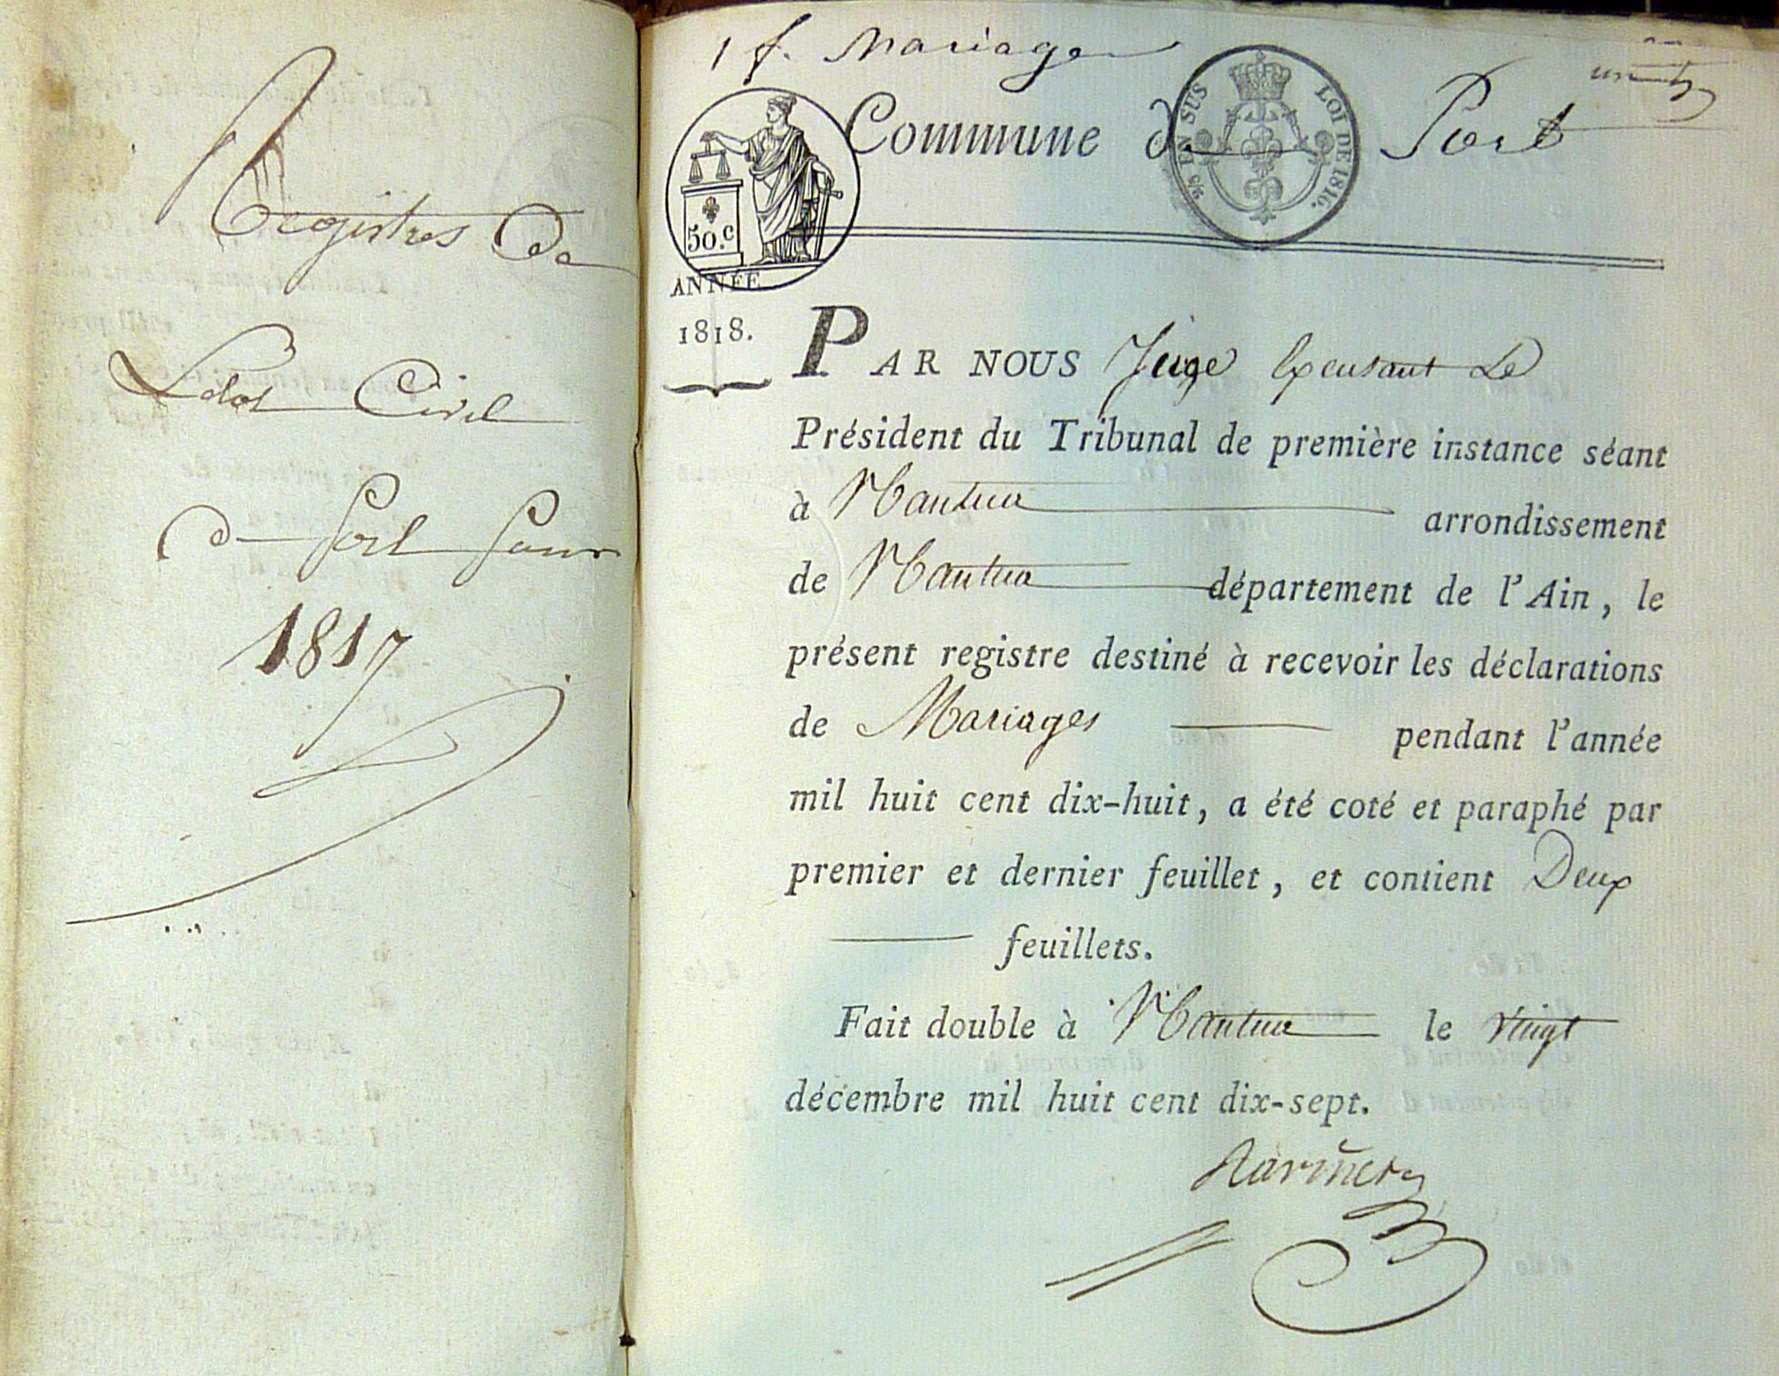 Registres De
L'état Civil
de Port pour
1817
1 f. Mariage
Commune de Port
2/5 EN SUS
LOI DE 1816.
50.c
ANNÉE
1818.
PAR NOUS Juge Exensant Le
Président du Tribunal de première instance séant
à Nantua arrondissement
de Nantua département de l'Ain, le
présent registre destiné à recevoir les déclarations
de Mariages pendant l'année
mil huit cent dix-huit, a été coté et paraphé par
premier et dernier feuillet, et contient Deux
feuillets.
Fait double à Nantua le vingt
décembre mil huit cent dix-sept.